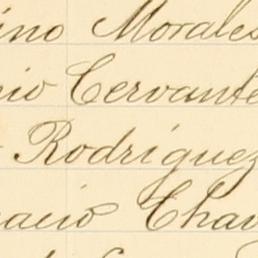 ino Morales
io Cervante
Rodríguez
nacio Chav